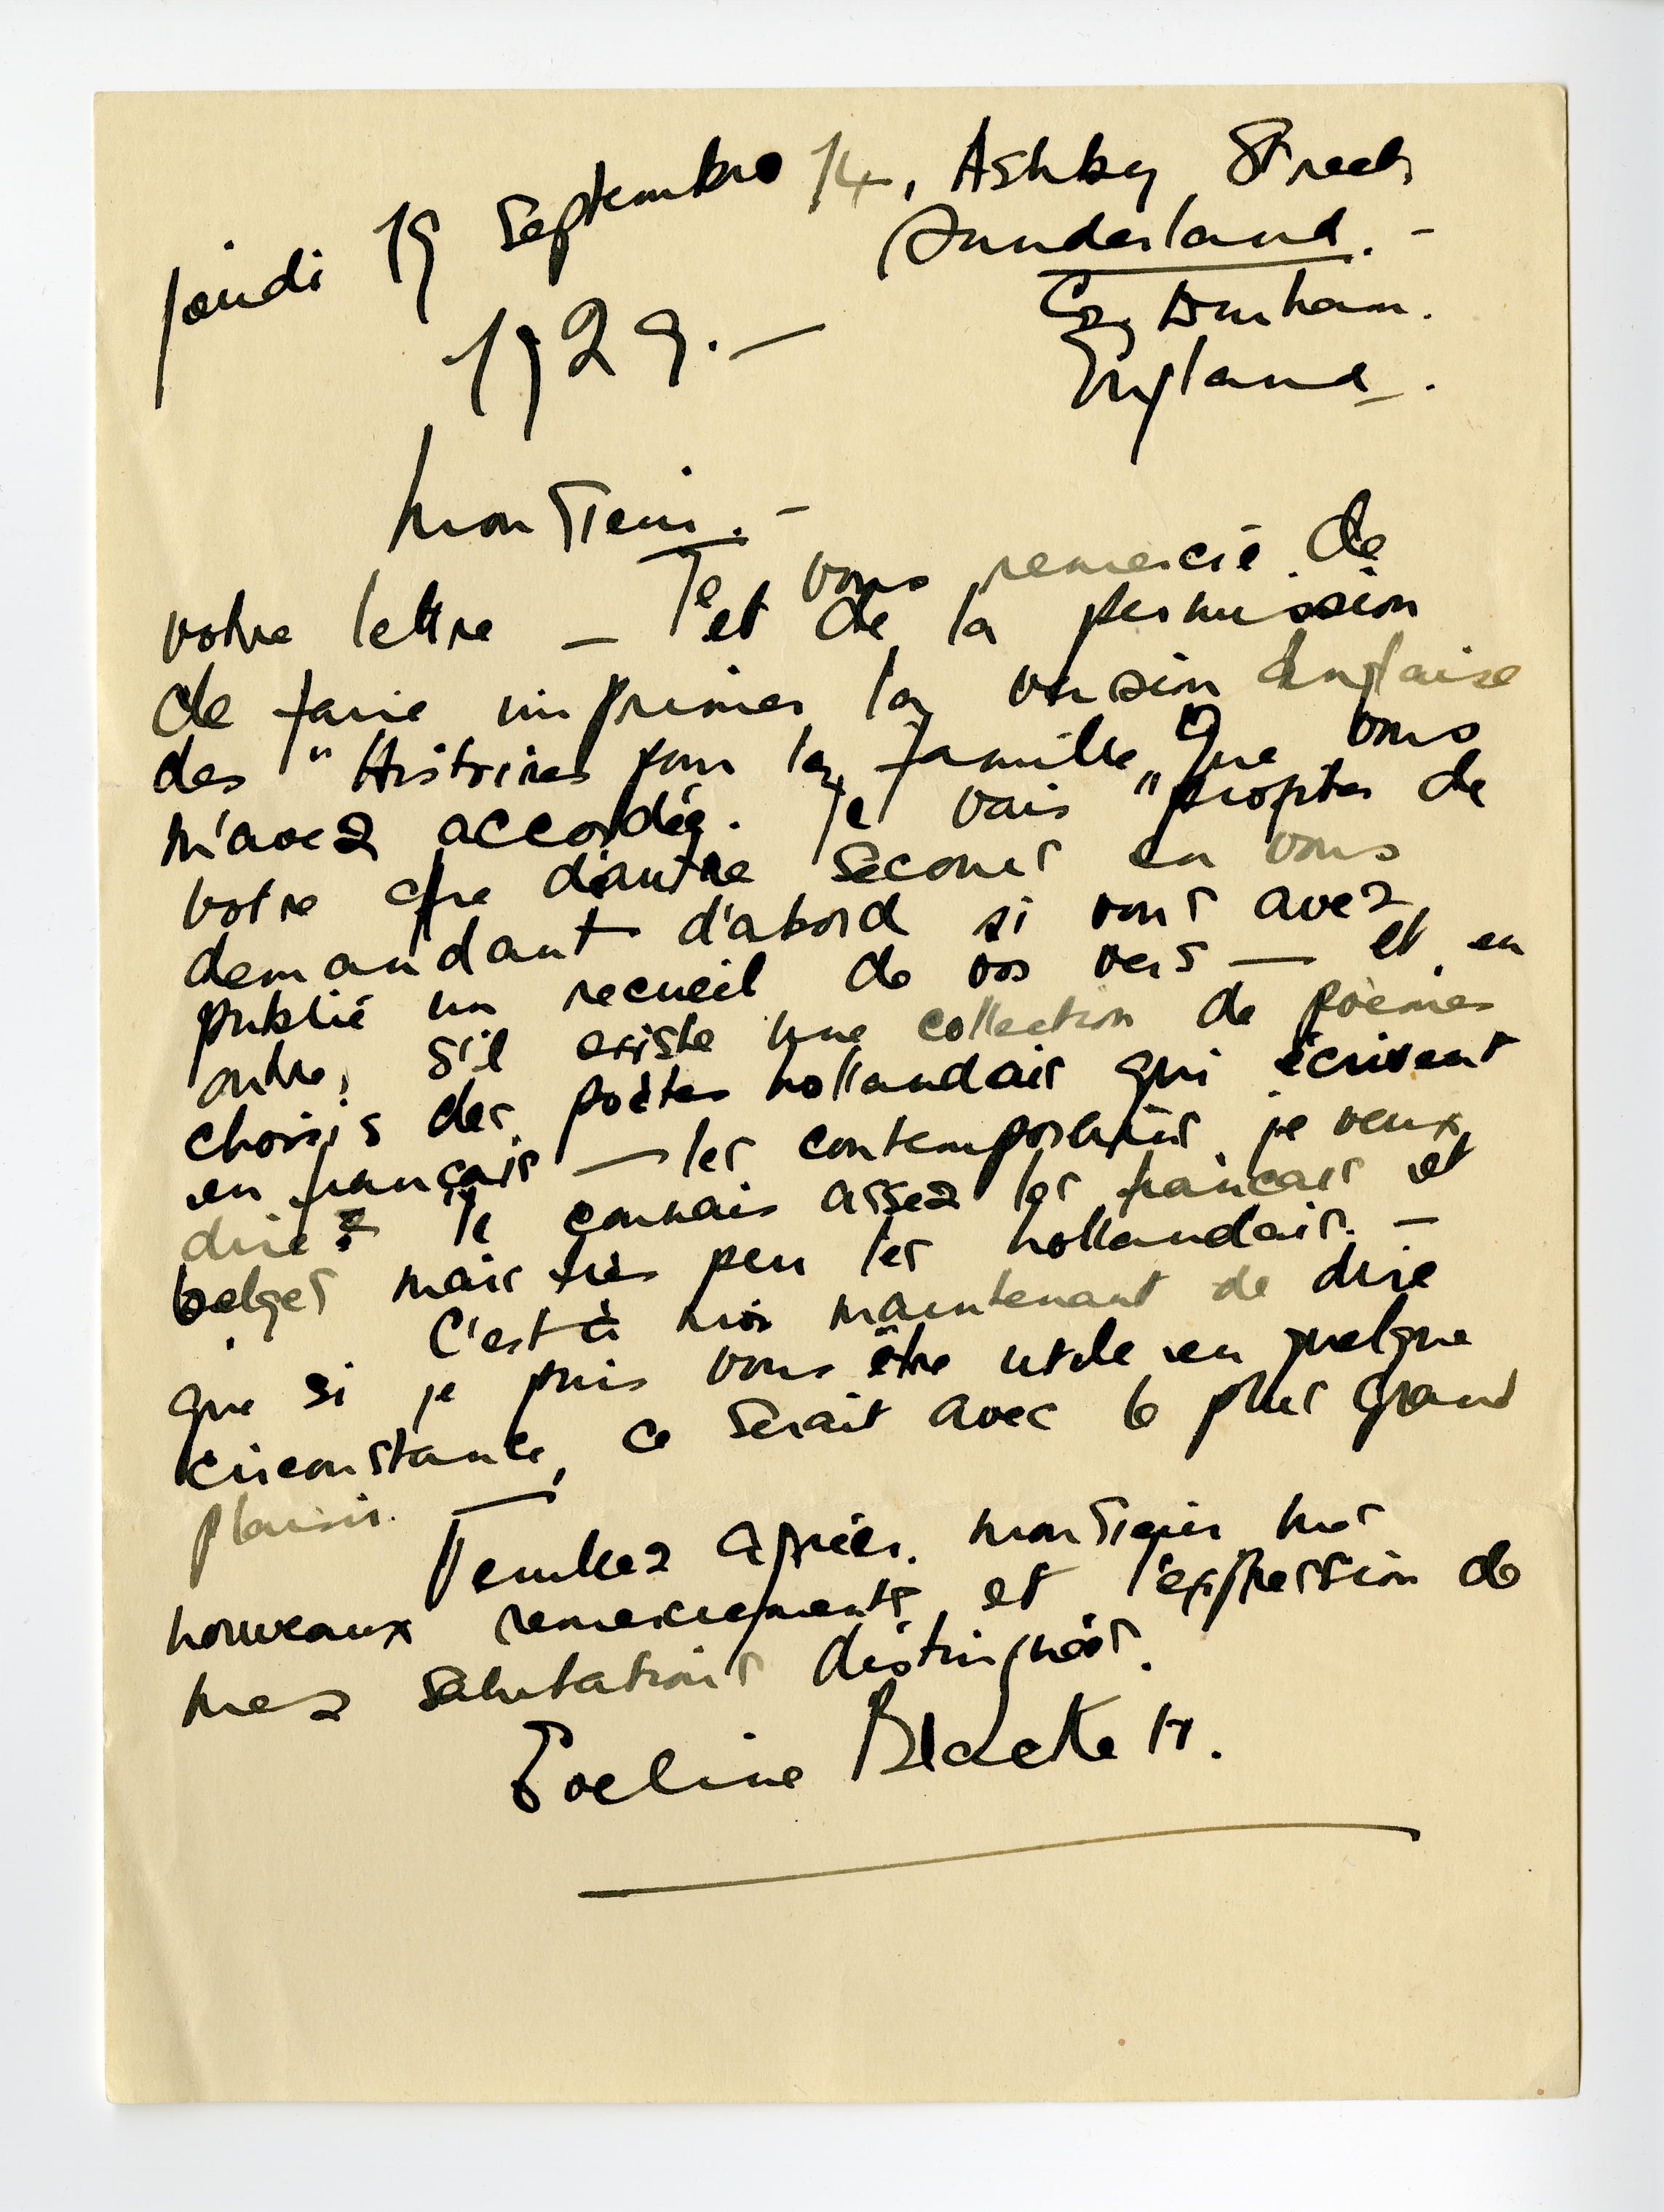 jeudi 19 septembre 14, Ashby Street
Sunderland. -
1929. — Co. Durham.
England.
Monsieur. -
Je vous remercie de
votre lettre — et de la permission
de faire imprimer la version Anglaise
des "Histoires pour la famille" Que vous
m'avez accordée. Je vais profiter de
votre d'autre secours en vous
demandant d'abord si vous avez
publié un recueil de vos vers — et en
outre, s'il existe une collection de poèmes
choisis des poètes hollandais qui écrivent
en français — les contemporains je veux
dire? Je connais assez les français et
belges mais très peu les hollandais. —
C'est à moi maintenant de dire
que si je puis vous être utile en quelque
circonstance, ce serait avec le plus grand
plaisir. —
Veuillez agréer. Monsieur mes
nouveaux remerciements et l'expression de
mes salutations distinguées.
Eveline Blackett.